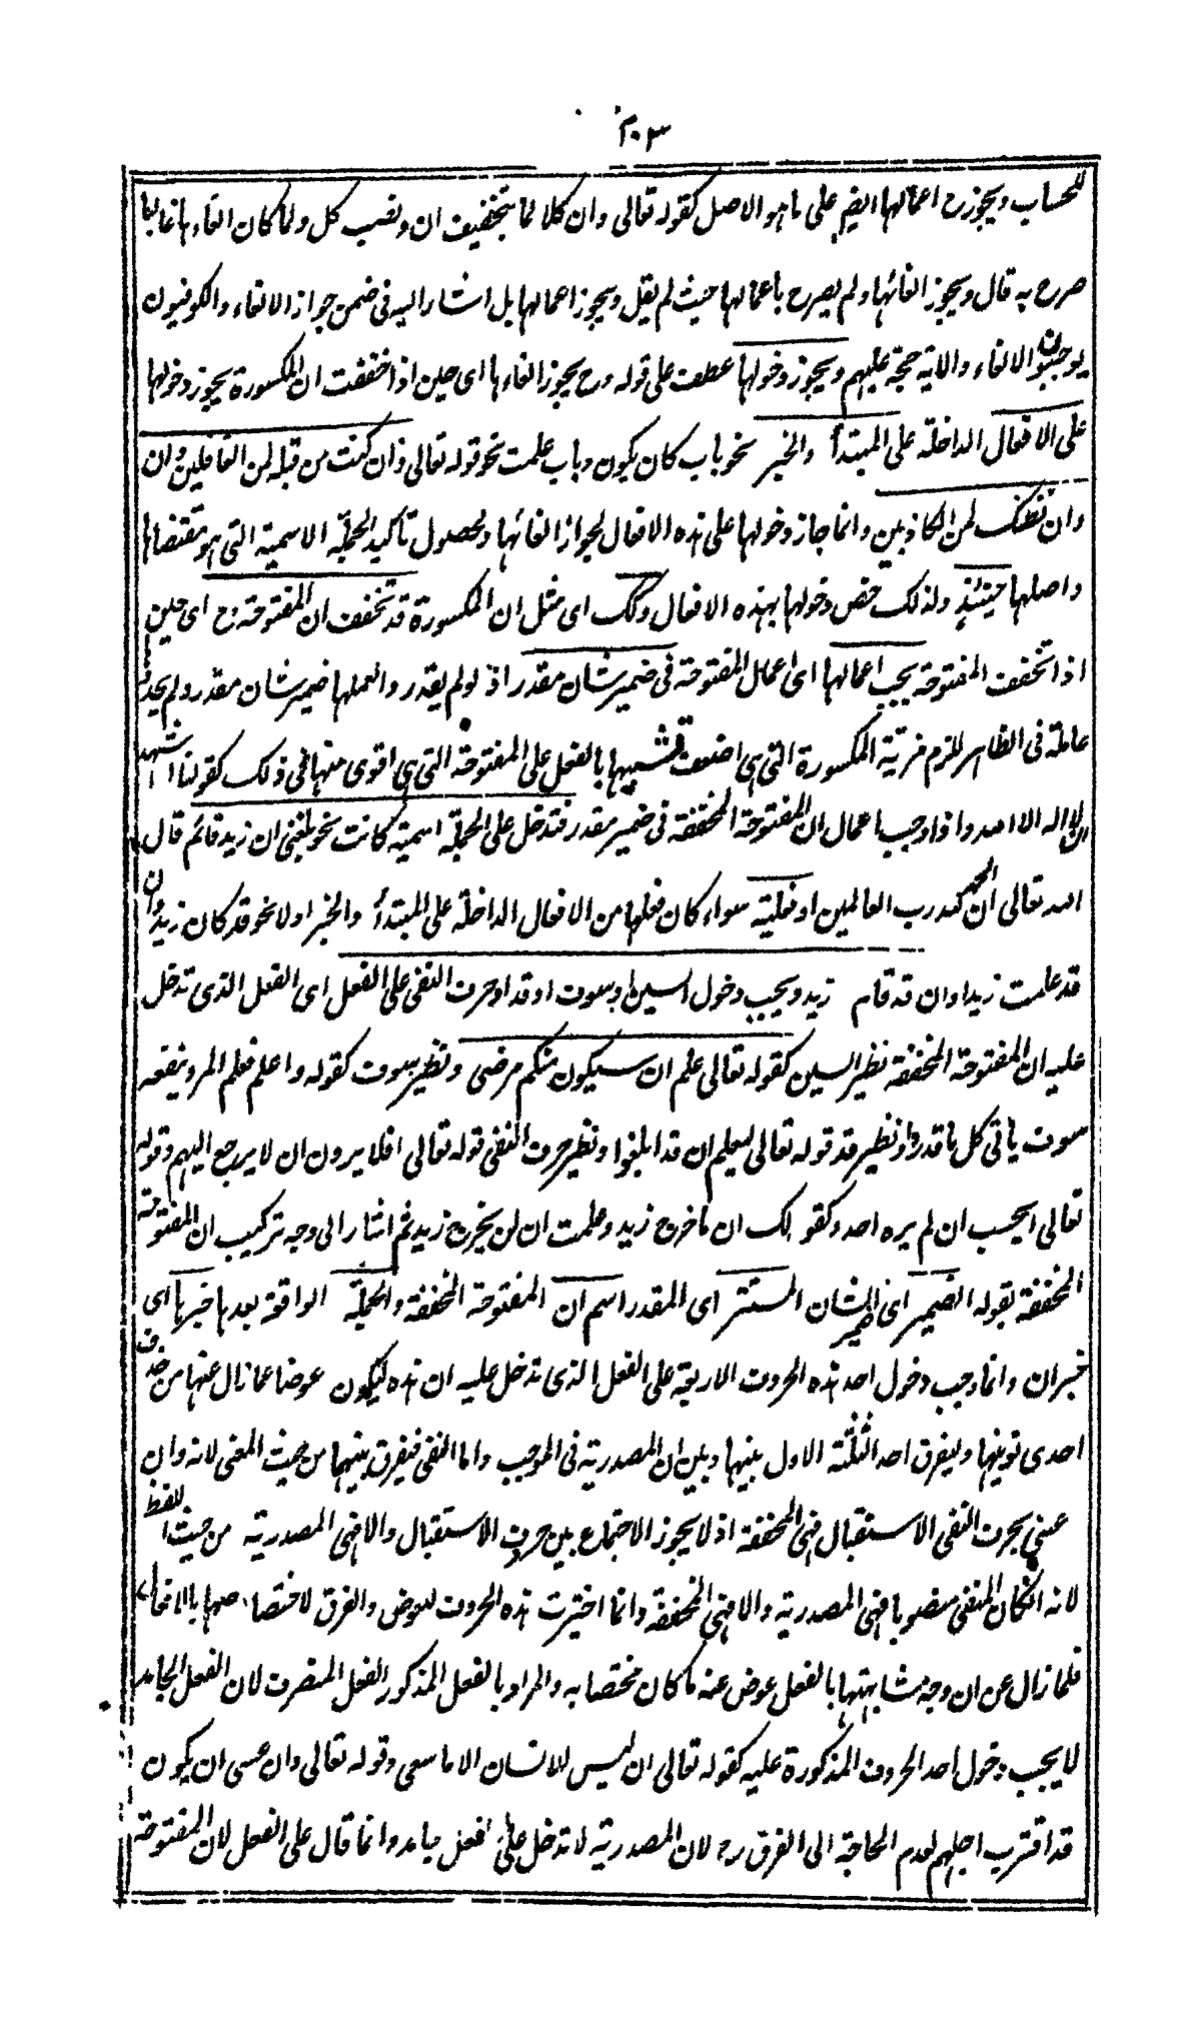 ٣٠٢
للحساب ويجوز ح اعمالها ايضم على ما هو الاصل كقوله تعالى وان كلا لما بتخفيف ان ونصب كل ولما كان الغاءها غالبا
صرح به قال ويجوز الغائها ولم يصرح باعمالها حيث لم يقل ويجوز اعمالها بل اشار اليه فى ضمن جواز الالغاء والكوفيون
يوجبون الالغاء والآية حجة عليهم ويجوز دخولها عطف على قوله وح يجوز الغاءها اى حين اذا خففت ان المكسورة يجوز دخولها
على الافعال الداخلة على المبتدأ والخبر نحو باب كان يكون وباب علمت نحو قوله تعالى وان كنت من قبله لمن الغافلين وان
وان نظنك لمن الكاذبين وانما جاز دخولها على هذه الافعال لجواز الغائها ولحصول تاكيد الجملة الاسمية التى هو مقتضاها
واصلها حينئذ ولذلك خص دخولها بهذه الافعال وكك اى مثل ان المكسورة قد تخفف ان المفتوحة وح اى حين
اذا تخفف المفتوحة يجب اعمالها اى اعمال المفتوحة فى ضمير شان مقدر اذ لو لم يقدر والعملها ضمير شان مقدر ولم يجد
عاملة فى الظاهر للزم مزية المكسورة التى هى اضعف شبيها بالفعل على المفتوحة التى هى اقوى منها فى ذلك كقولنا اشهد
ان لا اله الا الله واذا وجب اعمال ان المفتوحة المخففة فى ضمير مقدر فتدخل على الجملة اسمية كانت نحو بلغنى ان زيد قائم قال
الله تعالى ان الحمد لله رب العالمين او فعلية سواء كان فعلها من الافعال الداخلة على المبتدأ والخبر اولا نحو قد كان زيد وان
قد علمت زيدا وان قد قام زيد ويجب دخول السين او سوف او قد او حرف النفى على الفعل اى الفعل الذى تدخل
عليه ان المفتوحة المخففة نظير السين كقوله تعالى علم ان سيكون منكم مرضى ونظير سوف كقوله واعلم فعلم المرء ينفعه
سوف ياتى كل ما قدروا ونظير قد قوله تعالى ليعلم ان قد ابلغوا ونظير حرف النفى قوله تعالى افلا يرون ان لا يرجع اليهم وقوله
تعالى ايحسب ان لم يره احد وكقولك ان ما خرج زيد وعلمت ان لن يخرج زيد ثم اشار الى وجه تركيب ان المفتوحة
المخففة بقوله الضمير اى ضمير الشان المستتر اى المقدر اسم ان المفتوحة المخففة والجملة الواقعة بعدها خبرها اى
خبر ان وانما وجب دخول احد هذه الحروف الاربعة على الفعل الذى تدخل عليه ان هذه ليكون عوضا عما زال عنها من حذف
احدى نونيها وليفرق احد الثلثة الاول بينها وبين ان المصدرية فى الموجب واما النفى فيفرق بينهما من حيث المعنى لانه وان
عنى بحرف النفى الاستقبال فهى المخففة اذ لا يجوز الاجتماع بين حرف الاستقبال والا فهى المصدرية من حيث اللفظ
لانه انكان المنفى منصوبا فهى المصدرية والا فهى المخففة وانما اختيرت هذه الحروف للعوض والفرق لاختصاصها بالافعال
فلما زال عن ان وجه مشابهتها بالفعل عوض عنه ما كان مختصا به والمراد بالفعل المذكور الفعل المتصرف لان الفعل الجامد
لا يجب دخول احد الحروف المذكورة عليه كقوله تعالى ان ليس للانسان الا ما سعى وقوله تعالى وان عسى ان يكون
قد اقترب اجلهم لعدم الحاجة الى الفرق ح لان المصدرية لا تدخل على الفعل جامد وانما قال على الفعل لان المفتوحة